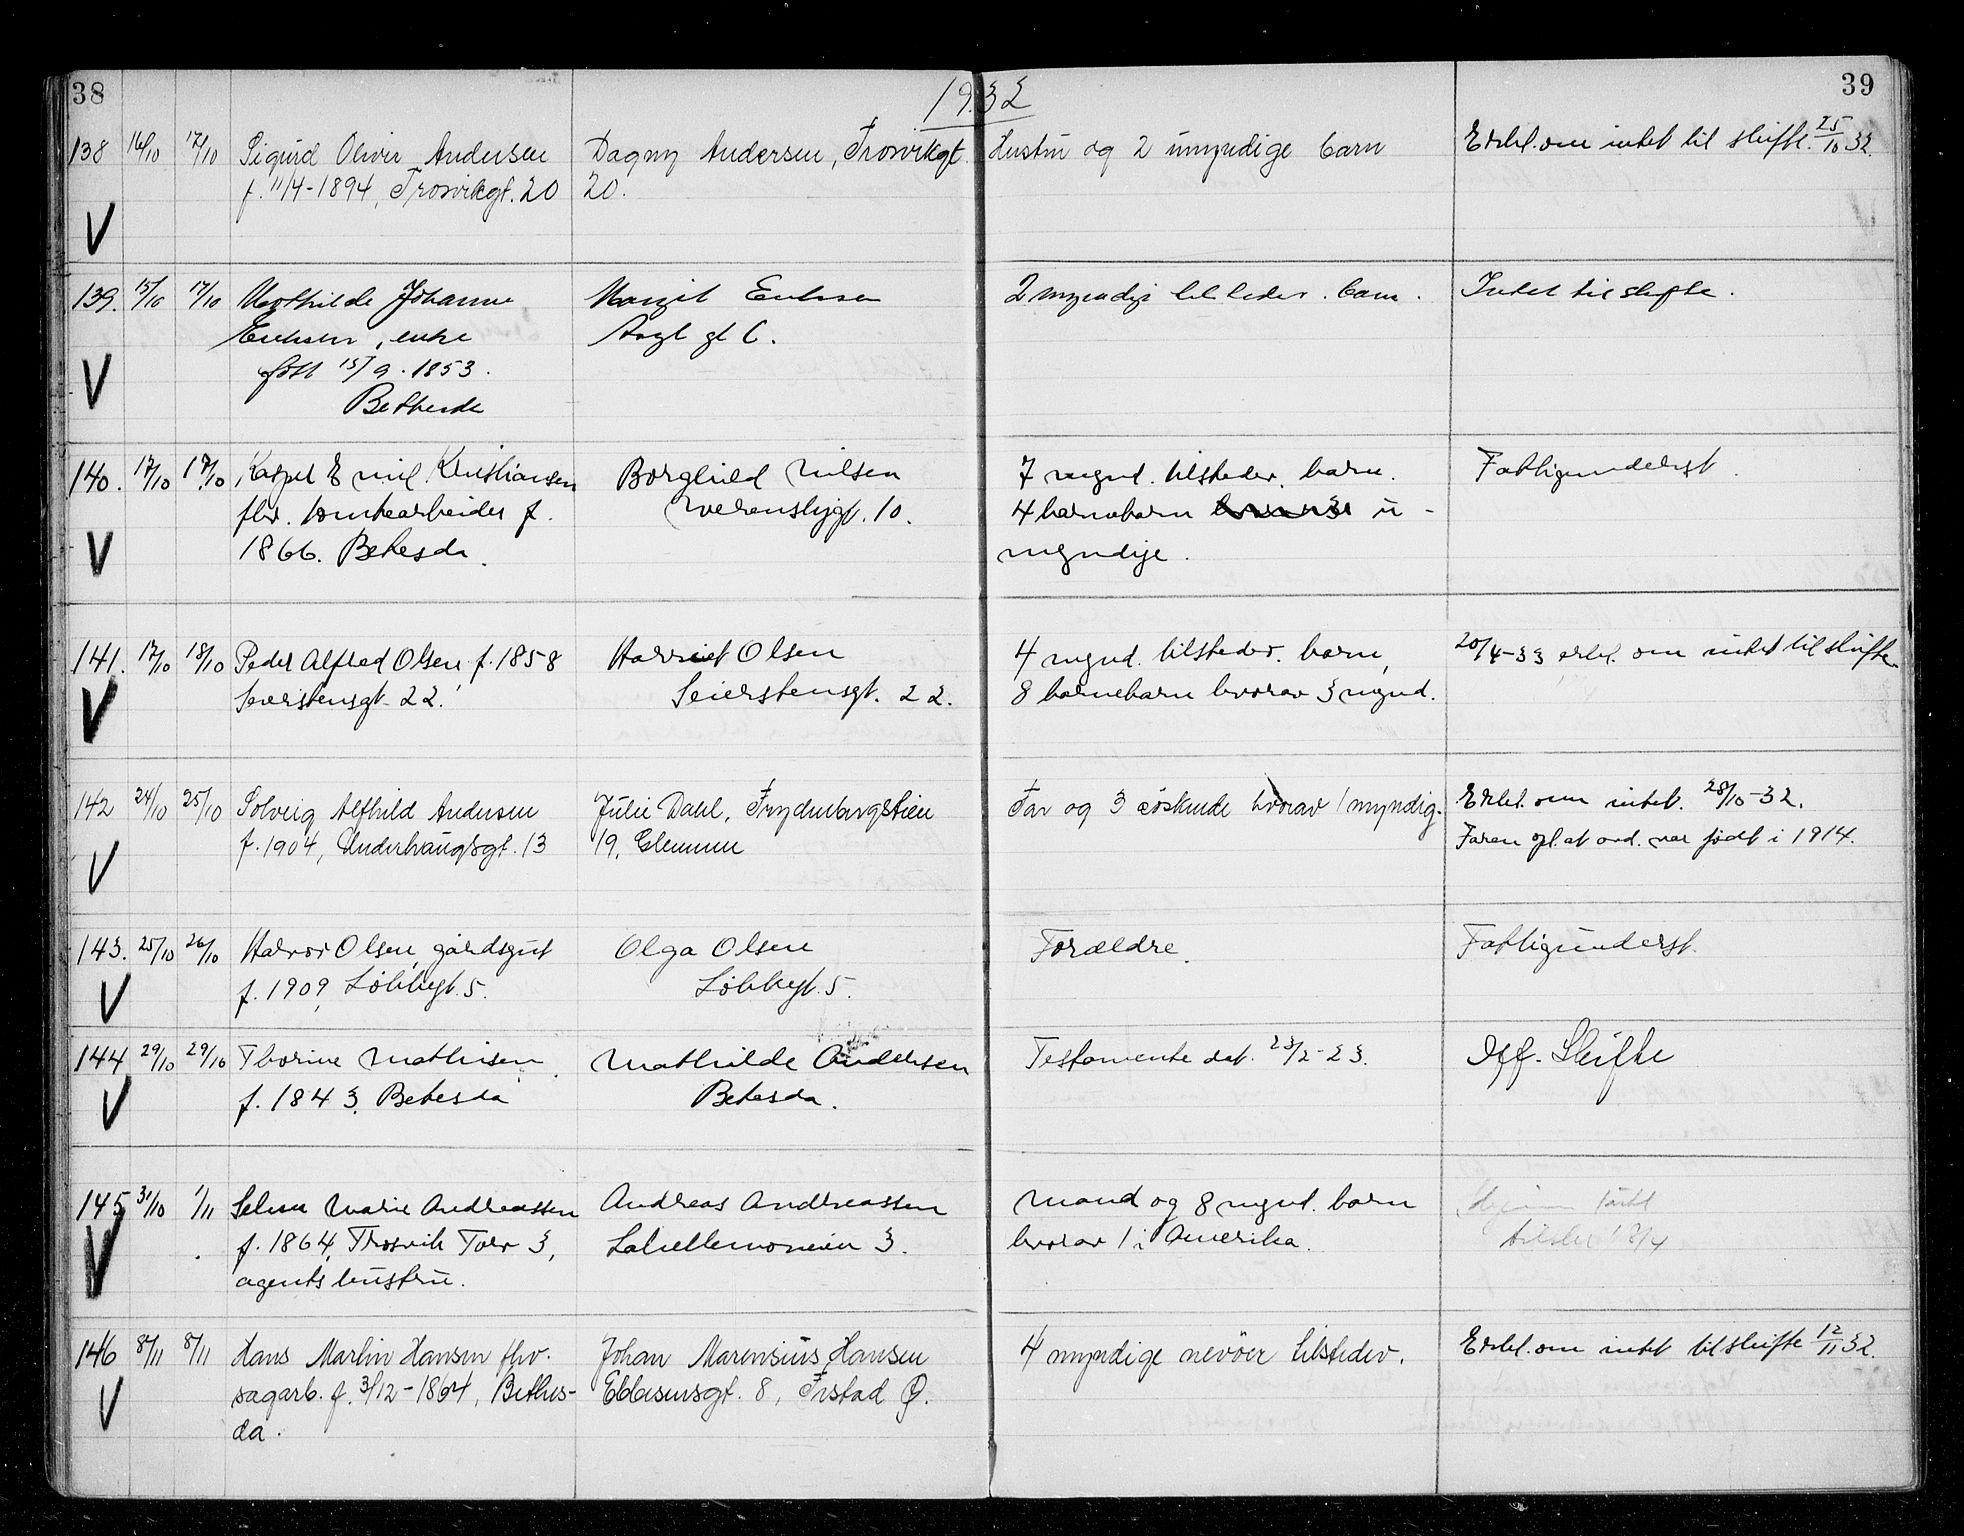 38
1932
39
138 16/10 17/10 Sigurd Oliver Andersen Dagny Andersen, Trosvikgt. Hustru og 2 umyndige barn Erkl. om intet til skifte. 25/10 32.
f. 11/4-1894, Trosvikgt. 20 20.
V
139. 15/10 17/10 Mathilde Johanne Margit Eriksen 2 myndige tilsteder. barn. Intet til skifte.
Eriksen, enke gt 6.
født 15/9. 1853.
V
Bethesda
140. 17/10 17/10 Kasper Emil Kristiansen Borghild Nilsen 7 mynd. tilsteder. barn. Fattigunderst.
fhv. tomtearbeider f. 10. 4 barnebarn u-
1866. Betesda. myndige.
V
141. 17/10 18/10 Peder Alfred Olsen f. 1858 Harriet Olsen 4 mynd. tilsteder. barn, 20/4-33 erkl. om intet til skifte.
Seierstensgt. 22. Seierstensgt. 22. 8 barnebarn hvorav 3 mynd.
V
142 24/10 25/10 Solveig Alfhild Andersen Julie Dahl, Frydenbergstien Far og 3 søskende hvorav 1 myndig. Erkl. om intet. 28/10-32.
f. 1904, Underhaugsgt. 13 19, Glemmen Faren opl. at avd. var født i 1914.
V
143. 25/10 26/10 Halvor Olsen, gårdsgut Olga Olsen Forældre. Fattigunderst.
f. 1909, Løkkegt. 5. Løkkegt. 5.
V
144 29/10 29/10 Thorine Mathisen Mathilde Andersen Testamente dat. 23/2-23. Off. Skifte
f. 1843. Betesda Betesda.
V
145 31/10 1/11 Marie Andreassen Andreas Andreassen Mand og 8 mynd. barn
f. 1864, Trosvik Torv 3, 3. hvorav 1 i Amerika.
agents hustru.
V
146 8/11 8/11 Hans Martin Hansen fhv. Johan Marensius Hansen 4 myndige nevøer tilsteder. Erkl. om intet til skifte 12/11 32.
sagarb. f. 3/12-1864, Bethes- Ebbesensgt. 8, Fr.stad Ø.
da.
V